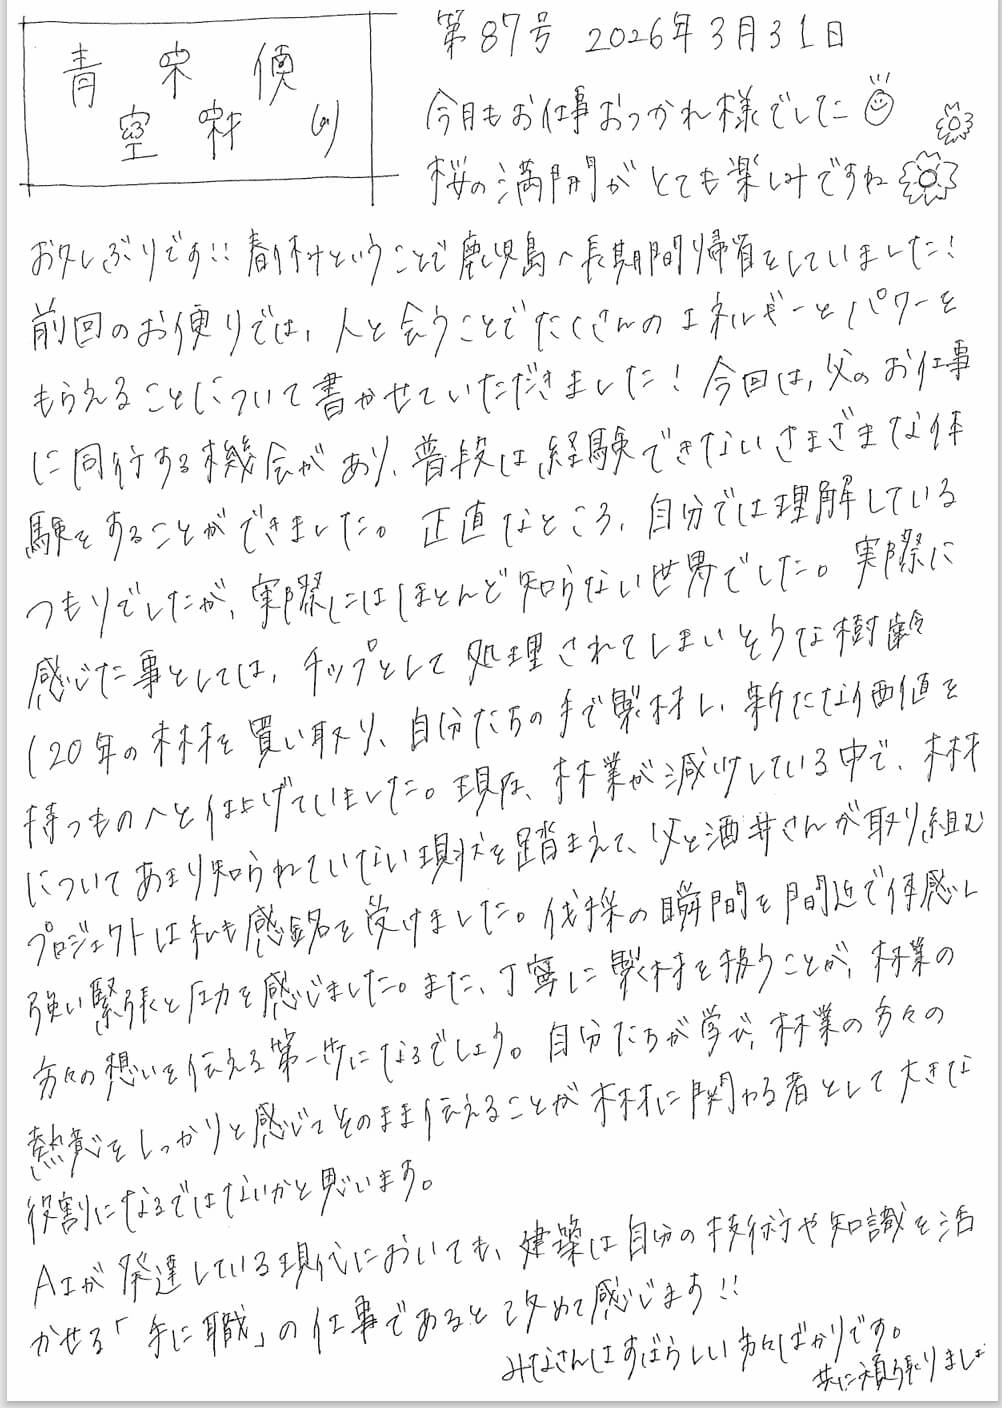 青空
第87号 2026年3月31日
今月もお仕事おつかれ様でした
桜の満開がとても楽しみですね
お久しぶりです!!春休みということで鹿児島へ長期間帰省をしていました!
前回のお便りでは、人と会うことでたくさんのエネルギーとパワーを
もらえることについて書かせていただきました!今回は、父のお仕事
に同行する機会があり、普段は経験できないさまざまな体
験をすることができました。正直なところ、自分では理解している
つもりでしたが、実際にはほとんど知らない世界でした。実際に
感じた事としては、チップとして処理されてしまいそうな樹齢
120年の木材を買い取り、自分たちの手で製材し、新たな価値を
持つものへと仕上げていました。現在、林業が減少している中で、木材
についてあまり知られていない現状を踏まえて、父と酒井さんが取り組む
プロジェクトは私も感銘を受けました。伐採の瞬間を間近で体感し
強い緊張と圧力を感じました。また、丁寧に製材を扱うことが、林業の
方々の想いを伝える第一歩になるでしょう。自分たちが学び、林業の方々の
熱意をしっかりと感じてそのまま伝えることが木材に関わる者として大きな
役割になるではないかと思います。
AIが発達している現代においても、建築は自分の技術や知識を活
かせる「手に職」の仕事であると改めて感じます!!
みなさんはすばらしい方々ばかりです。
共に頑張りましょ